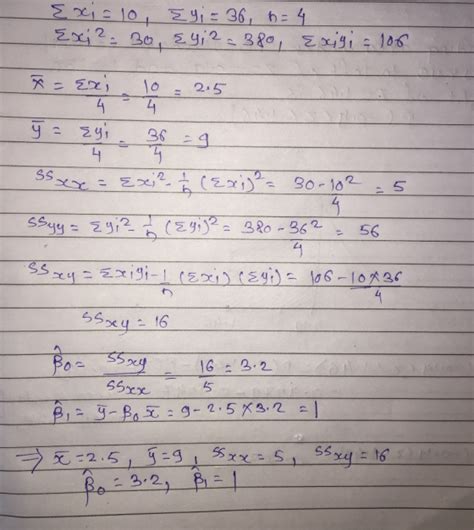 Σxi = 10, Σyi = 36, n = 4
Σxi² = 30, Σyi² = 380, Σxiyi = 106
x̄ = Σxi/4 = 10/4 = 2.5
ȳ = Σyi/4 = 36/4 = 9
SSxx = Σxi² - 1/n (Σxi)² = 30 - 10²/4 = 5
SSyy = Σyi² - 1/n (Σyi)² = 380 - 36²/4 = 56
SSxy = Σxiyi - 1/n (Σxi) (Σyi) = 106 - 10×36/4
SSxy = 16
β̂0 = SSxy/SSxx = 16/5 = 3.2
β̂1 = ȳ - β0 x̄ = 9 - 2.5 × 3.2 = 1
⇒ x̄ = 2.5, ȳ = 9, SSxx = 5, SSxy = 16
β̂0 = 3.2, β̂1 = 1